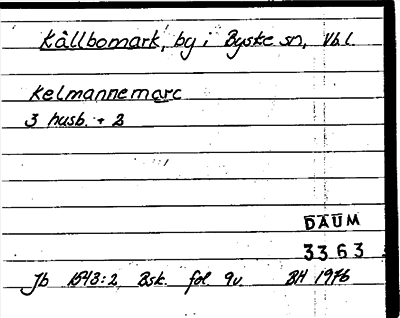 Kållbomark, by i Byske sn, Vb l.
Kelmannemarc
3 husb. + 2
DAUM
3363
Jb 1543:2 Bsk. fol. 9v. BH 1976